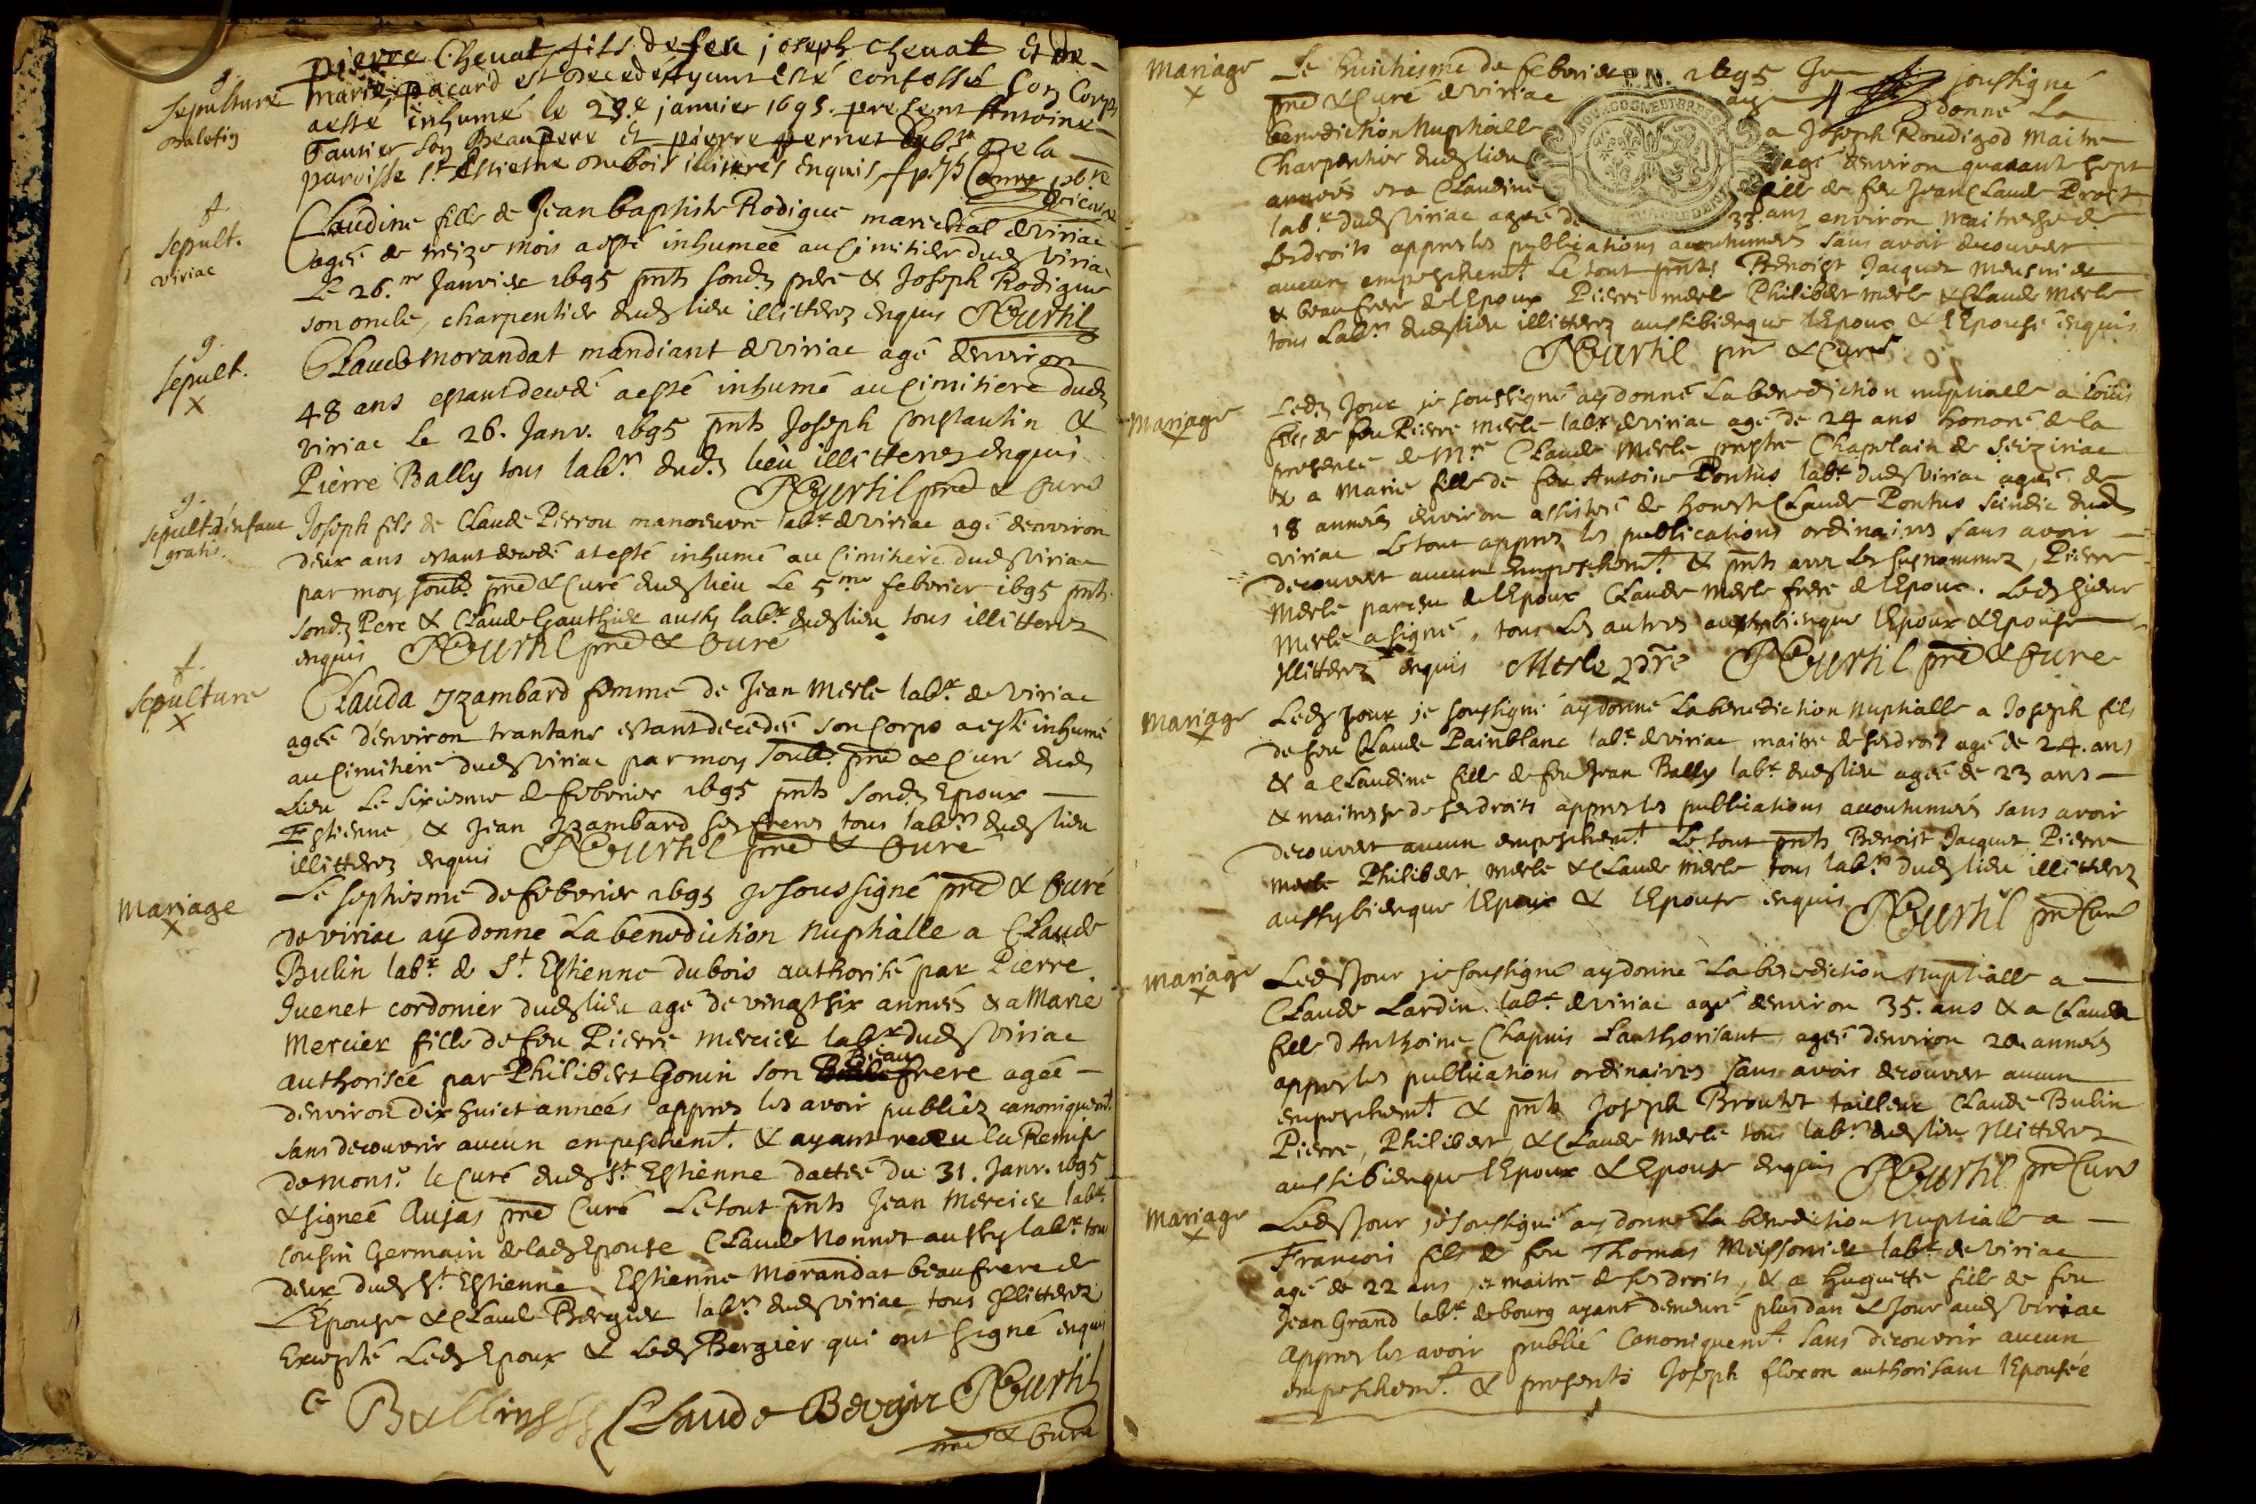 pierre Chevat fils de feu joseph chevat Et de
sepulture
marie pacard est decedé ayant Esté confessé son Corps
aesté inhumé le 23.e janvier 1695. present Antoine
Gautier son Beaupere Et pierre pernet de la
paroisse St Estienne dubois illitteres enquis
sepult.
viriac
Claudine fille de Jean baptiste Rodigue marechal de viriac
agée de treize mois a esté inhumeé au Cimitiere dud viriac
Le 26.me Janvier 1695 pnts sond pere & Joseph Rodigue
son oncle, charpentier dud lieu illitterez enquis Curtil
9.
sepult.
x
Claude morandat mandiant de viriac agé denviron
48 ans estant decedé a esté inhumé au Cimitiere dud
viriac Le 26. Janv. 1695 pnts Joseph Constantin &
Pierre Bally tous labrs dud. lieu illitterez enquis
Curtil pre & Curé
9.
sepult. d'enfant
gratis.
Joseph fils de Claude Pierrou manoeuvre labr de viriac agé denviron
deux ans estant decedé at esté inhumé au Cimitiere dud viriac
par moy soub. pre & Curé dud lieu Le 5.me febvrier 1695 pnts
sond Pere & Claude Gauthier aussy labr dud lieu tous illitterez
enquis Curtil pre & Curé
sepulture
x
Clauda Yzambard femme de Jean Merle labr. de viriac
agée d'environ trantans estant decedeé son Corps a esté inhumé
au Cimitiere dud viriac par moy soub. pre & Curé dud
Lieu Le sixiesme de febvrier 1695 pnts sond Epoux
Estienne, & Jean Jzambard ses freres tous labrs dud lieu
illitterez enquis Curtil pre & Curé
mariage
x
Le septiesme de febvrier 1695 Je soussigné pre & Curé
de viriac ay donné La benediction nuptialle a Claude
Bulin labr. de St. Estienne dubois authorisé par Pierre
Juenet cordonier dud lieu agé de vingt six années & a Marie
Mercier fille de feu Pierre mercier labr dud viriac
authorisée par Philibert Gonin son Beau frere agée
denviron dix huict années appres les avoir publiéz canoniquemt.
sans decouvrir aucun empeschemt. & ayant receu la Remise
de mons.r le Curé dud St Estienne datteé du 31. Janr. 1695
& signeé Aujas pre Curé Le tout pnts Jean Mercier labr.
cousin Germain de lad Epouse Claude Monnet aussy labr. tous
deux dud St. Estienne Estienne Morandat beaufrere de
L'Epouse & Claude Bergier labrs dud viriac tous illitterez
Excepté Led Epoux & Led Bergier qui ont signé enquis
C Bullin Claude Bergier Curtil
pre & Curé
Mariage
x
Le huictiesme de febvrier 1695 Je soussigné
pre & Curé de viriac ay donné La
benediction Nuptialle a Joseph Roudigod Maitre
Charpentier dud lieu agé denviron quarante sept
années & a Claudine fille de feu Jean Claude Prost
labr. dud viriac agée de 33. ans environ maitresse de
ses droits appres les publications acoutumées sans avoir decouvert
aucun empeschemt. Le tout pnts Benoist Jacquet meusnier
& beau frere de l'Epoux Pierre merle Philibert merle & Claude Merle
tous Labrs dud lieu illitterez aussi bien que l'Epoux & l'Epouse enquis
Curtil pre & Curé
Mariage
x
Led Jour je soussigné ay donné La benediction nuptialle a Loüis
fils de feu Pierre merle labr de viriac agé de 24 ans honoré de la
presence de Mre Claude Merle prestre Chapelain de Seiziriac
& a Marie fille de feu Antoine Pontus labr. dud viriac agée de
18 années environ assistée de honeste Claude Pontus scindic dud
viriac Le tout appres les publications ordinaires sans avoir
decouvert aucun Empeschemt. & pnts avec les susnommez, Pierre
Merle parein de l'Epoux Claude merle frere de l'Epoux. Led sieur
Merle a signé, tous Les autres aussy bien que l'Epoux & Epouse
Jllitterez enquis Merle ptre Curtil pre & Cure
Mariage
x
Led Jour je soussigné ay donné La benediction Nuptialle a Joseph fils
de feu Claude Painblanc labr. de viriac maitre de ses droits agé de 24. ans
& a Claudine fille de feu Jean Bally labr. dud lieu agée de 23 ans
& maitresse de ses droits appres les publications acoutumées sans avoir
decouvert aucun empeschemt. Le tout pnts Benoist Jacquet Pierre
merle Philibert merle & Claude merle tous labrs dud lieu illitterez
aussy bien que l'Epoux & l'Epouse enquis Curtil pre Curé
Mariage
x
Led Jour je soussigné ay donné La benediction Nuptialle a
Claude Lardin labr. de viriac agé denviron 35. ans & a Clauda
fille d'Anthoine Chapuis L'authorisant agée denviron 20 années
appres les publications ordinaires sans avoir decouvert aucun
empeschemt. & pnts Joseph Broutet tailleur Claude Bulin
Pierre, Philibert, & Claude Merle tous labrs dud lieu Jllitterez
aussi bien que l'Epoux & Epouse enquis Curtil pre Curé
Mariage
x
Led Jour je soussigné ay donné La benediction Nuptialle a
Francois fils de feu Thomas Moissonier labr. de viriac
agé de 22 ans & maitre de ses droits, & a Huguette fille de feu
Jean Grand labr. de bourg ayant demeuré plus dan & Jour aud viriac
Appres les avoir publié Canoniquemt. sans decouvrir aucun
empeschemt. & presents Joseph floron authorisant l'Epouseé